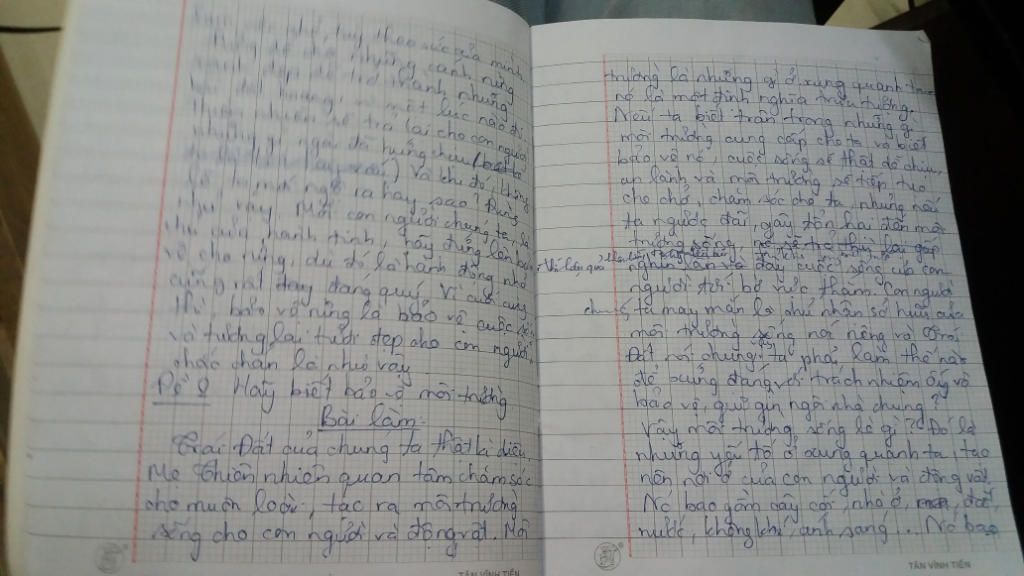 theo sức của mình
để cho những cánh rừng
đẹp đẽ trở thành những
một lúc nào đó
sẽ trả lại cho con người
những gì người đã hứng chịu
và khi đó, không
phải ta mới ngộ ra hay sao! Đừng
như vậy. Mỗi con người chúng ta, là
chủ của hành tinh, hãy đứng lên bảo
vệ cho rừng, dù đó là hành động nhỏ
cũng rất đáng quý. Vì cuối cùng
thì, bảo vệ rừng là bảo vệ cuộc sống
và tương lai tươi đẹp cho con người,
chắc chắn là như vậy
Đề 2 Hãy biết bảo vệ môi trường
Bài làm.
Trái Đất của chúng ta thật kì diệu.
Mẹ thiên nhiên quan tâm chăm sóc
cho muôn loài, tạo ra môi trường
sống cho con người và động vật. Môi
trường là những gì ở xung quanh
nó là một định nghĩa trừu tượng.
Nếu ta biết trân trọng những gì
môi trường cung cấp cho ta và biết
bảo vệ nó, cuộc sống sẽ thật dễ chịu,
an lành và môi trường sẽ tiếp tục
che chở, chăm sóc cho ta, nhưng nếu
ta ngược đãi, gây tổn hại đến môi
trường sống, nó sẽ trả thù lại gấp
nghìn lần và đẩy cuốc sống của con
người tới bờ vực thẳm. Con người
chúng ta may mắn là chủ nhân sở hữu của
môi trường sống nói riêng và Trái
Đất nói chung, ta phải làm thế nào
để xứng đáng với trách nhiệm ấy và
bảo vệ, giữ gìn ngôi nhà chung?
Vậy môi trường sống là gì? Đó là
những yếu tố ở xung quanh ta, tạo
nên nơi ở của con người và động vật.
Nó bao gồm cây cối, nhà ở, đất,
nước, không khí, ánh sáng... Nó bao
TÂN VĨNH TIẾN
TÂN VĨNH TIẾN